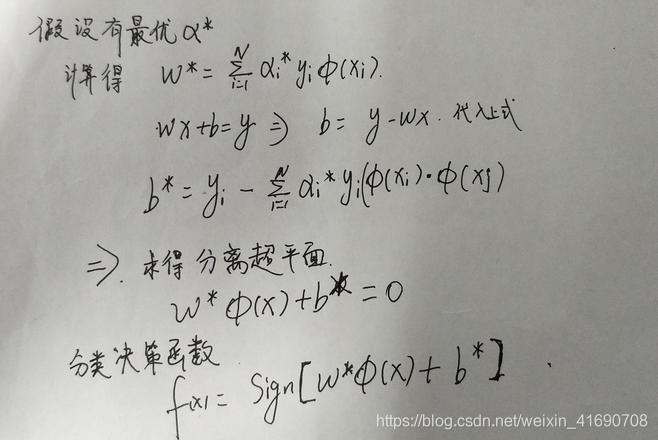 假设有最优 α*
计算得 w* = Σ_{i=1}^{N} αi* yi Φ(xi).
wx+b=y ⇒ b = y-wx. 代入上式
b* = yi - Σ_{i=1}^{N} αi* yi(Φ(xi)·Φ(xj)
⇒. 求得分离超平面.
w* Φ(x)+b* = 0
分类决策函数
f(x) = Sign[w*Φ(x)+ b*] .
https://blog.csdn.net/weixin_41690708